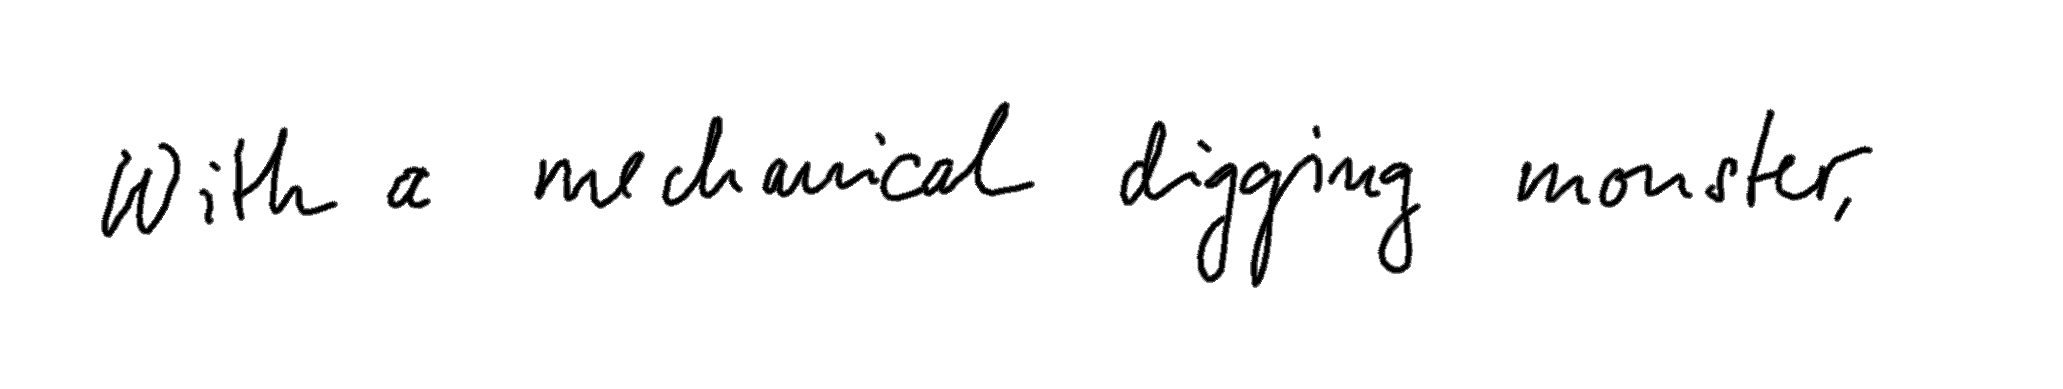 With a mechanical digging monster,